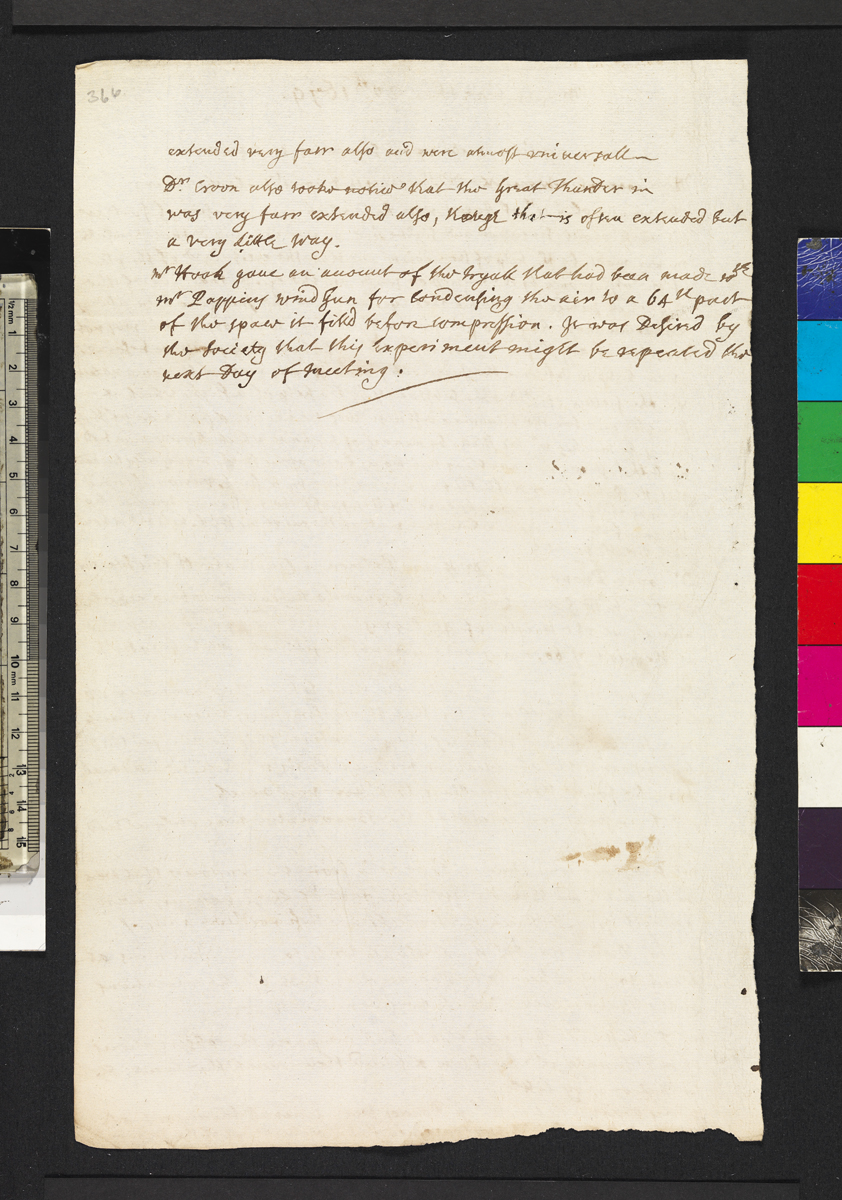 366
extended very farr also and were almost universall
Dr Croon also tooke notice that the Great Thunder in
was very farr extended also, though that is often extended but
a very little way.
Mr Hook gave an account of the tryall that had been made wth
Mr Pappins wind gun for condensing the air to a 64th part
of the space it fill'd before compression. It was Desired by
the Society that this Experiment might be repeated the
next Day of meeting.
1/2 mm
1
2
3
4
5
6
7
8
9
10 mm
11
12
13
14
15